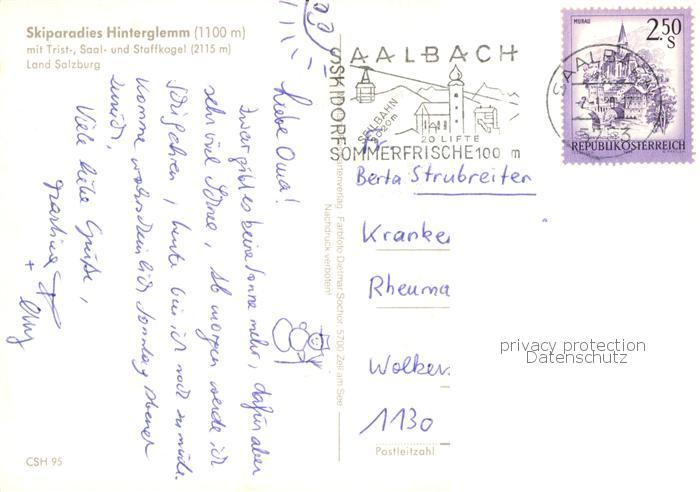 Skiparadies Hinterglemm (1100 m)
mit Trist-, Saal- und Staffkogel (2115 m)
Land Salzburg
Liebe Oma!
Zwar gibt es keine Sonne mehr, dafür aber
sehr viel Schnee, ab morgen werde ich
Skifahren, heute bin ich noch zu müde.
Komme wahrscheinlich Sonntag abend
zurück,
Viele liebe Grüße,
Martina
+
CSH 95
Farbfoto Dietmar Sochor, 5700 Zell am See
Nachdruck verboten!
SAALBACH
SKIDORF
SEILBAHN
2020m
20 LIFTE
SOMMERFRISCHE 100 m
SAALBACH
MURAU
2.50
S
REPUBLIK ÖSTERREICH
Fr.
Berta Strubreiter
Kranke
Rheuma
Wolker
1130
Postleitzahl
privacy protection
Datenschutz